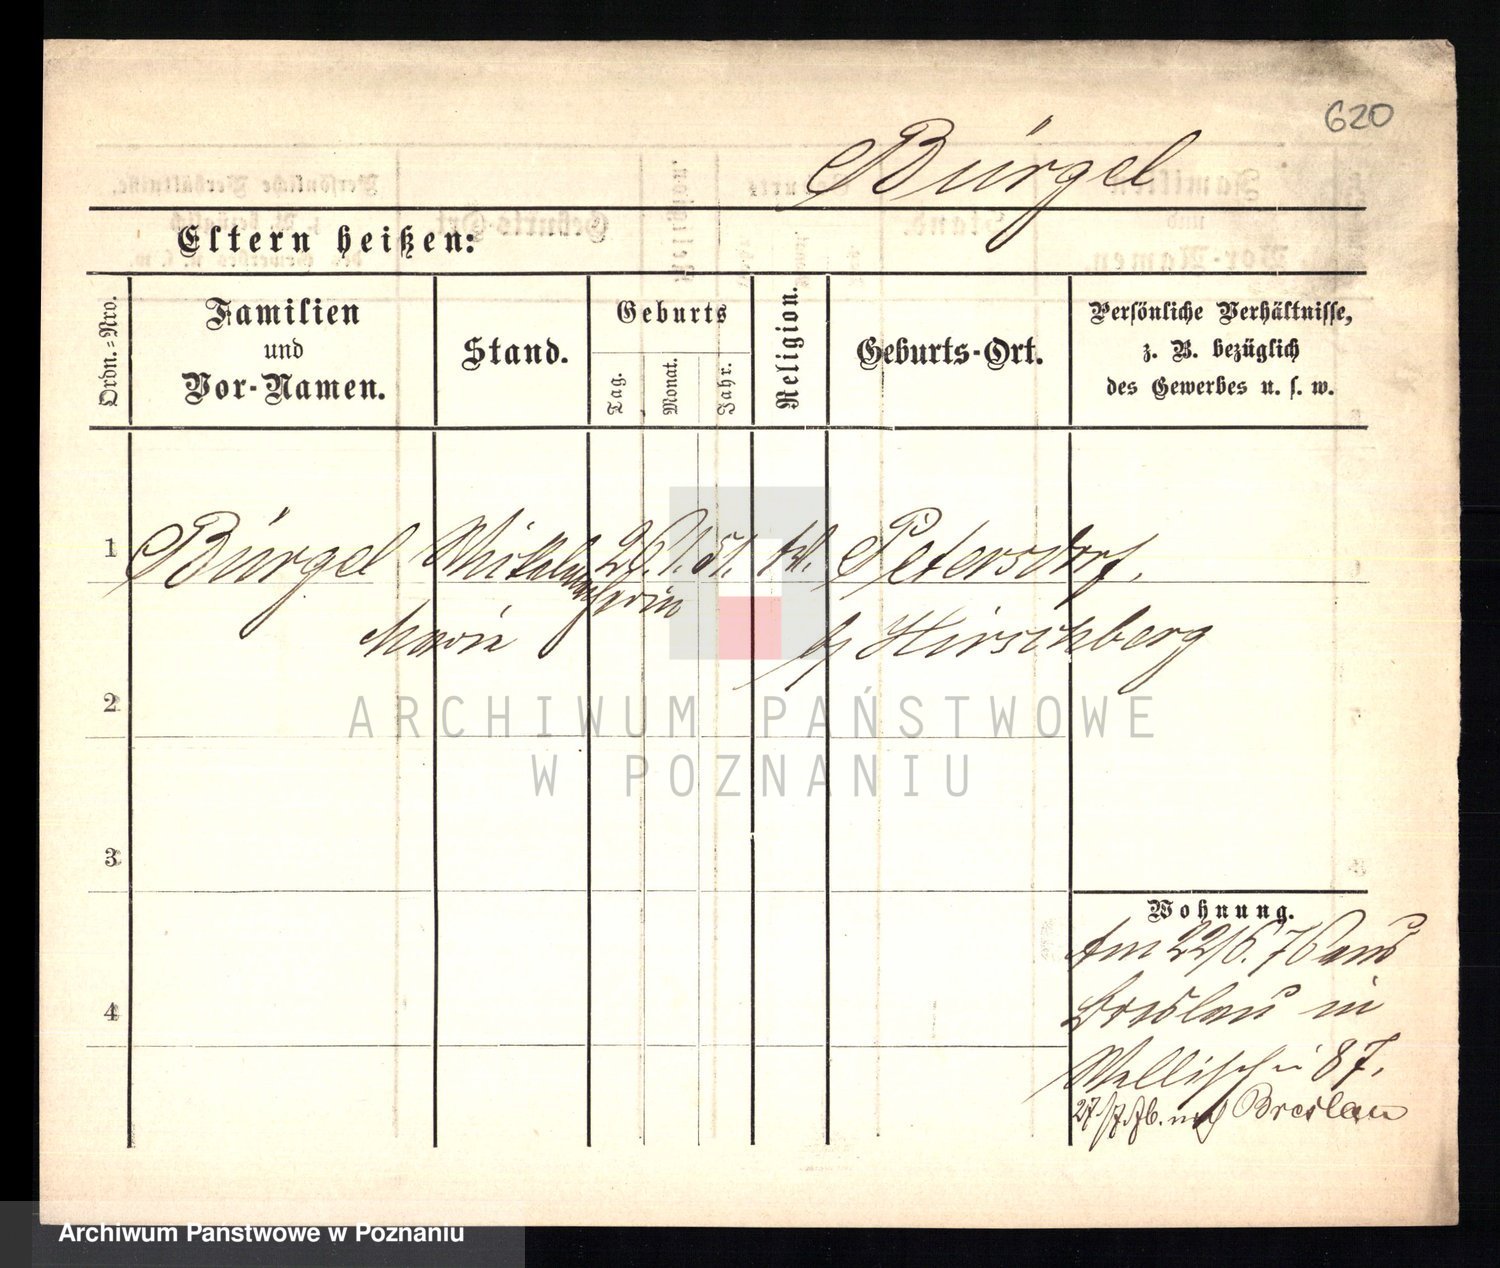 620
Bürgel
Eltern heißen:
Ordn.=Nro.
Familien
und
Vor-Namen.
Stand.
Geburts
Tag.
Monat.
Jahr.
Religion.
Geburts-Ort.
Persönliche Verhältnisse,
z. B. bezüglich
des Gewerbes u. s. w.
1 Bürgel 26. 1. 51. kt. Petersdorf,
Marie b/ Hirschberg
2
ARCHIWUM PAŃSTWOWE
W POZNANIU
3
Wohnung.
Am 22/6. 76 aus
Breslau in
4
Wallischei 87.
27/7. 76. nach Breslau
Archiwum Państwowe w Poznaniu